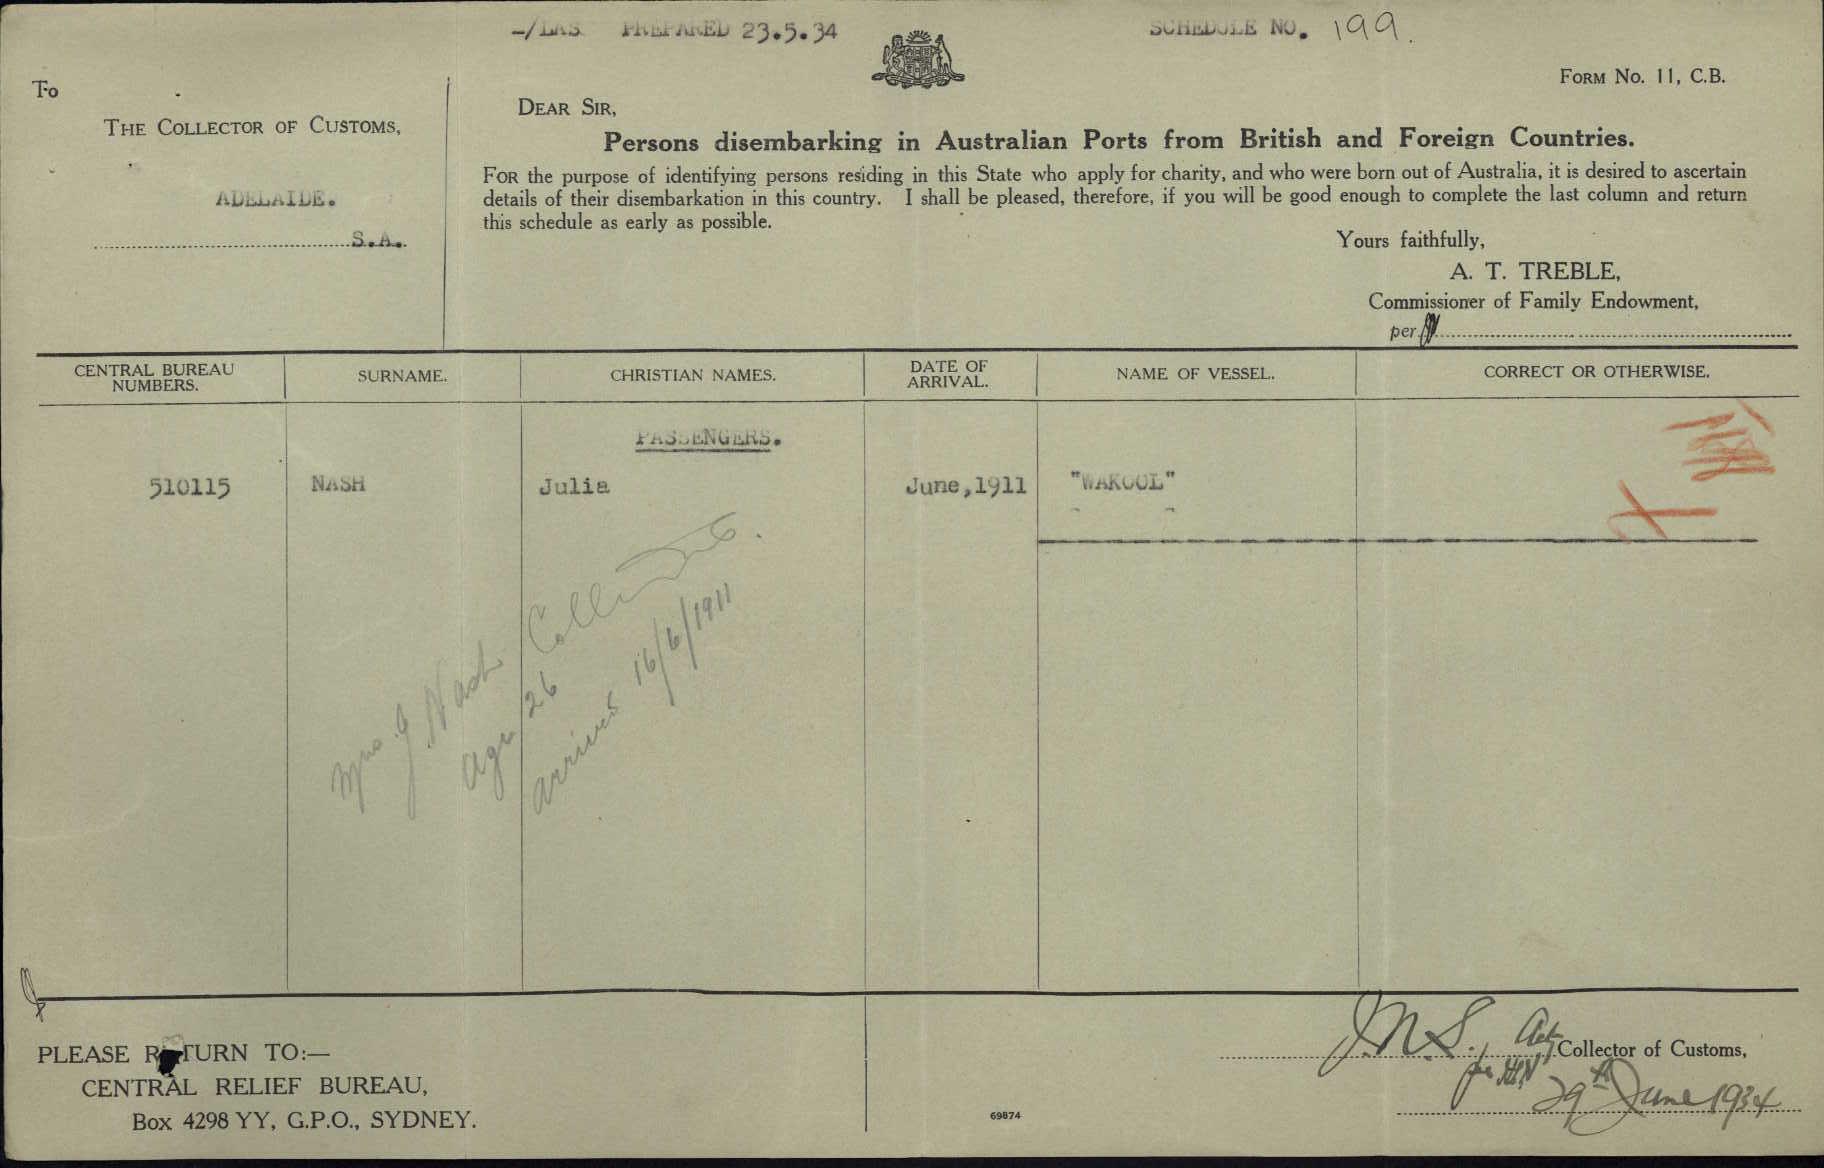 -/LAS PREPARED 23.5.34
SCHEDULE NO. 199.
FORM No. 11, C.B.
To
THE COLLECTOR OF CUSTOMS,
ADELAIDE.
S.A.
DEAR SIR,
Persons disembarking in Australian Ports from British and Foreign Countries.
FOR the purpose of identifying persons residing in this State who apply for charity, and who were born out of Australia, it is desired to ascertain
details of their disembarkation in this country. I shall be pleased, therefore, if you will be good enough to complete the last column and return
this schedule as early as possible.
Yours faithfully,
A. T. TREBLE,
Commissioner of Family Endowment,
per
CENTRAL BUREAU NUMBERS. SURNAME. CHRISTIAN NAMES. DATE OF ARRIVAL. NAME OF VESSEL. CORRECT OR OTHERWISE.
PASSENGERS.
510115 NASH Julia June,1911 "WAKOOL"
Mrs. J. Nash
Age 26
arrived 16/6/1911
PLEASE RETURN TO:—
CENTRAL RELIEF BUREAU,
Box 4298 YY, G.P.O., SYDNEY.
69874
J.N.S., Actg Collector of Customs,
29th June 1934